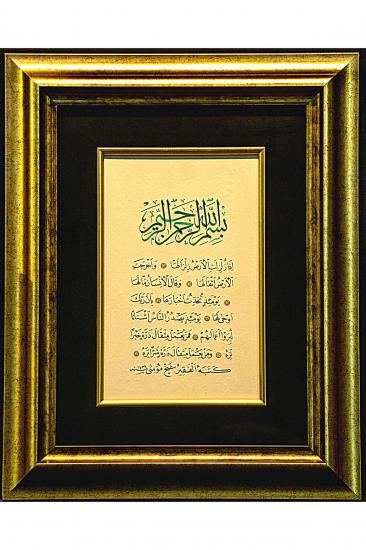 بسم الله الرحمن الرحيم
اذا زلزلت الارض زلزالها ۝ واخرجت
الارض اثقالها ۝ وقال الانسان مالها
۝ يومئذ تحدث اخبارها ۝ بان ربك
اوحى لها ۝ يومئذ يصدر الناس اشتاتا
ليروا اعمالهم ۝ فمن يعمل مثقال ذرة خيرا
يره ۝ ومن يعمل مثقال ذرة شرا يره ۝
كتبه الحقير